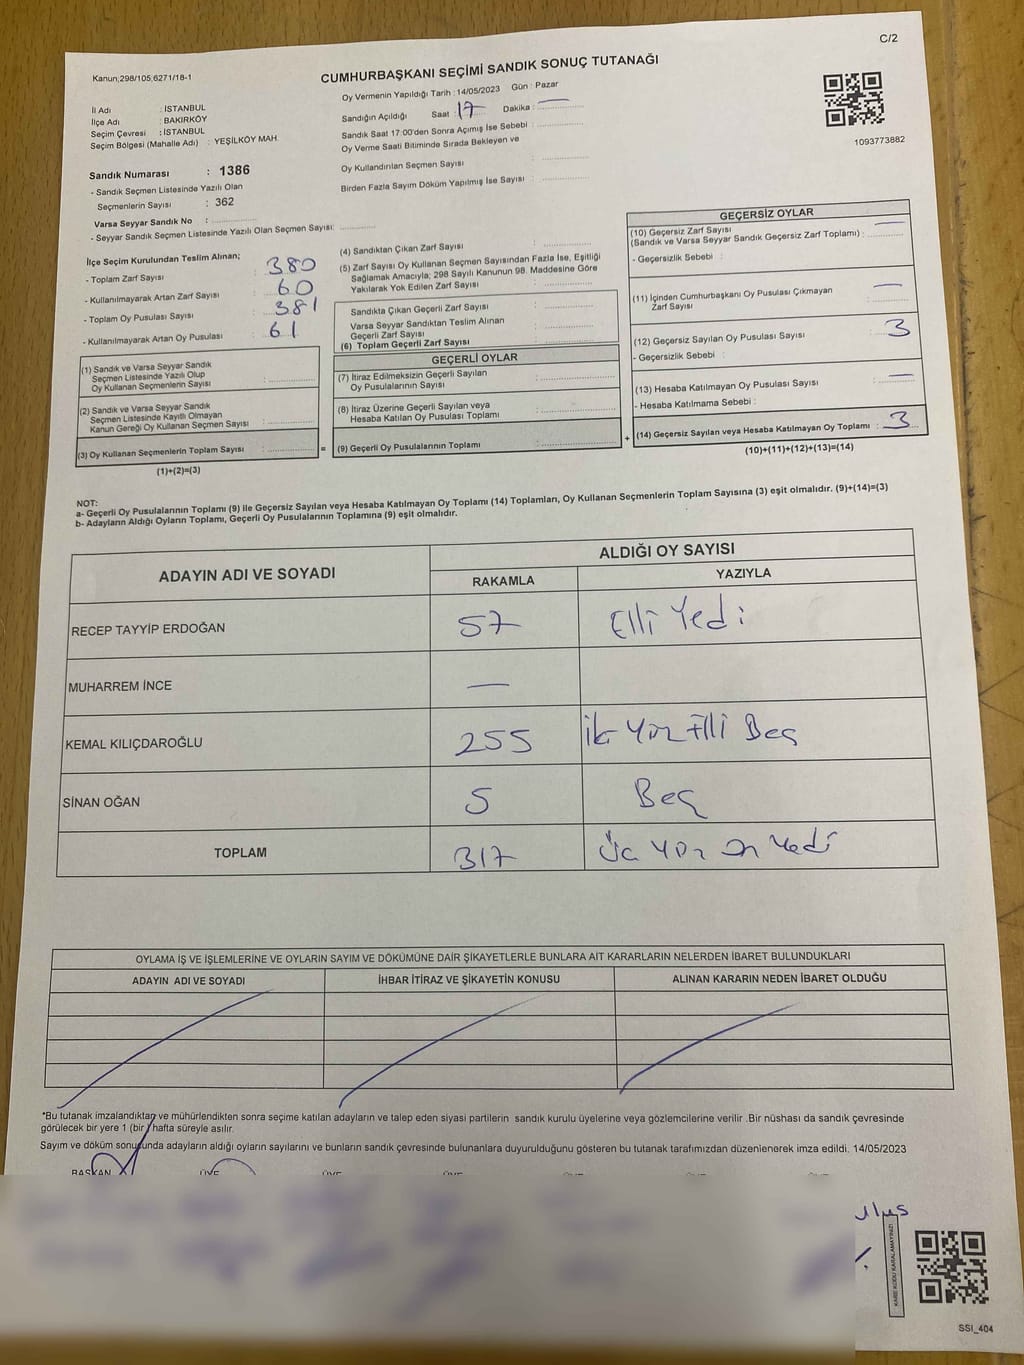 C/2
Kanun;298/105;6271/18-1
CUMHURBAŞKANI SEÇİMİ SANDIK SONUÇ TUTANAĞI
Oy Vermenin Yapıldığı Tarih :14/05/2023 Gün : Pazar
İl Adı : İSTANBUL
İlçe Adı : BAKIRKÖY
Seçim Çevresi : İSTANBUL
Seçim Bölgesi (Mahalle Adı) : YEŞİLKÖY MAH.
Sandığın Açıldığı Saat : 17 Dakika : —
Sandık Saat 17:00'den Sonra Açımış İse Sebebi :
Oy Verme Saati Bitiminde Sırada Bekleyen ve
Oy Kullandırılan Seçmen Sayısı :
Birden Fazla Sayım Döküm Yapılmış İse Sayısı :
1093773882
Sandık Numarası : 1386
- Sandık Seçmen Listesinde Yazılı Olan
Seçmenlerin Sayısı : 362
Varsa Seyyar Sandık No :
- Seyyar Sandık Seçmen Listesinde Yazılı Olan Seçmen Sayısı:
İlçe Seçim Kurulundan Teslim Alınan;
- Toplam Zarf Sayısı : 380
- Kullanılmayarak Artan Zarf Sayısı : 60
- Toplam Oy Pusulası Sayısı : 381
- Kullanılmayarak Artan Oy Pusulası : 61
(1) Sandık ve Varsa Seyyar Sandık
Seçmen Listesinde Yazılı Olup
Oy Kullanan Seçmenlerin Sayısı :
(2) Sandık ve Varsa Seyyar Sandık
Seçmen Listesinde Kayıtlı Olmayan
Kanun Gereği Oy Kullanan Seçmen Sayısı :
(3) Oy Kullanan Seçmenlerin Toplam Sayısı :
(1)+(2)=(3)
=
(4) Sandıktan Çıkan Zarf Sayısı :
(5) Zarf Sayısı Oy Kullanan Seçmen Sayısından Fazla İse, Eşitliği
Sağlamak Amacıyla; 298 Sayılı Kanunun 98. Maddesine Göre
Yakılarak Yok Edilen Zarf Sayısı :
Sandıkta Çıkan Geçerli Zarf Sayısı :
Varsa Seyyar Sandıktan Teslim Alınan
Geçerli Zarf Sayısı :
(6) Toplam Geçerli Zarf Sayısı :
GEÇERLİ OYLAR
(7) İtiraz Edilmeksizin Geçerli Sayılan
Oy Pusulalarının Sayısı :
(8) İtiraz Üzerine Geçerli Sayılan veya
Hesaba Katılan Oy Pusulası Toplamı :
(9) Geçerli Oy Pusulalarının Toplamı :
+
GEÇERSİZ OYLAR
(10) Geçersiz Zarf Sayısı
(Sandık ve Varsa Seyyar Sandık Geçersiz Zarf Toplamı) : —
- Geçersizlik Sebebi :
(11) İçinden Cumhurbaşkanı Oy Pusulası Çıkmayan
Zarf Sayısı : —
(12) Geçersiz Sayılan Oy Pusulası Sayısı : 3
- Geçersizlik Sebebi :
(13) Hesaba Katılmayan Oy Pusulası Sayısı : —
- Hesaba Katılmama Sebebi :
(14) Geçersiz Sayılan veya Hesaba Katılmayan Oy Toplamı : 3
(10)+(11)+(12)+(13)=(14)
NOT:
a- Geçerli Oy Pusulalarının Toplamı (9) ile Geçersiz Sayılan veya Hesaba Katılmayan Oy Toplamı (14) Toplamları, Oy Kullanan Seçmenlerin Toplam Sayısına (3) eşit olmalıdır. (9)+(14)=(3)
b- Adayların Aldığı Oyların Toplamı, Geçerli Oy Pusulalarının Toplamına (9) eşit olmalıdır.
ADAYIN ADI VE SOYADI
ALDIĞI OY SAYISI
RAKAMLA YAZIYLA
RECEP TAYYİP ERDOĞAN 57 Elli Yedi
MUHARREM İNCE —
KEMAL KILIÇDAROĞLU 255 iki Yüz Elli Beş
SİNAN OĞAN 5 Beş
TOPLAM 317 Üç Yüz On Yedi
OYLAMA İŞ VE İŞLEMLERİNE VE OYLARIN SAYIM VE DÖKÜMÜNE DAİR ŞİKAYETLERLE BUNLARA AİT KARARLARIN NELERDEN İBARET BULUNDUKLARI
ADAYIN ADI VE SOYADI İHBAR İTİRAZ VE ŞİKAYETİN KONUSU ALINAN KARARIN NEDEN İBARET OLDUĞU
*Bu tutanak imzalandıktan ve mühürlendikten sonra seçime katılan adayların ve talep eden siyasi partilerin sandık kurulu üyelerine veya gözlemcilerine verilir .Bir nüshası da sandık çevresinde
görülecek bir yere 1 (bir) hafta süreyle asılır.
Sayım ve döküm sonucunda adayların aldığı oyların sayılarını ve bunların sandık çevresinde bulunanlara duyurulduğunu gösteren bu tutanak tarafımızdan düzenlenerek imza edildi. 14/05/2023
BAŞKAN ÜYE ÜYE ÜYE
KARE KODU KARALAMAYINIZ!
SSI_404